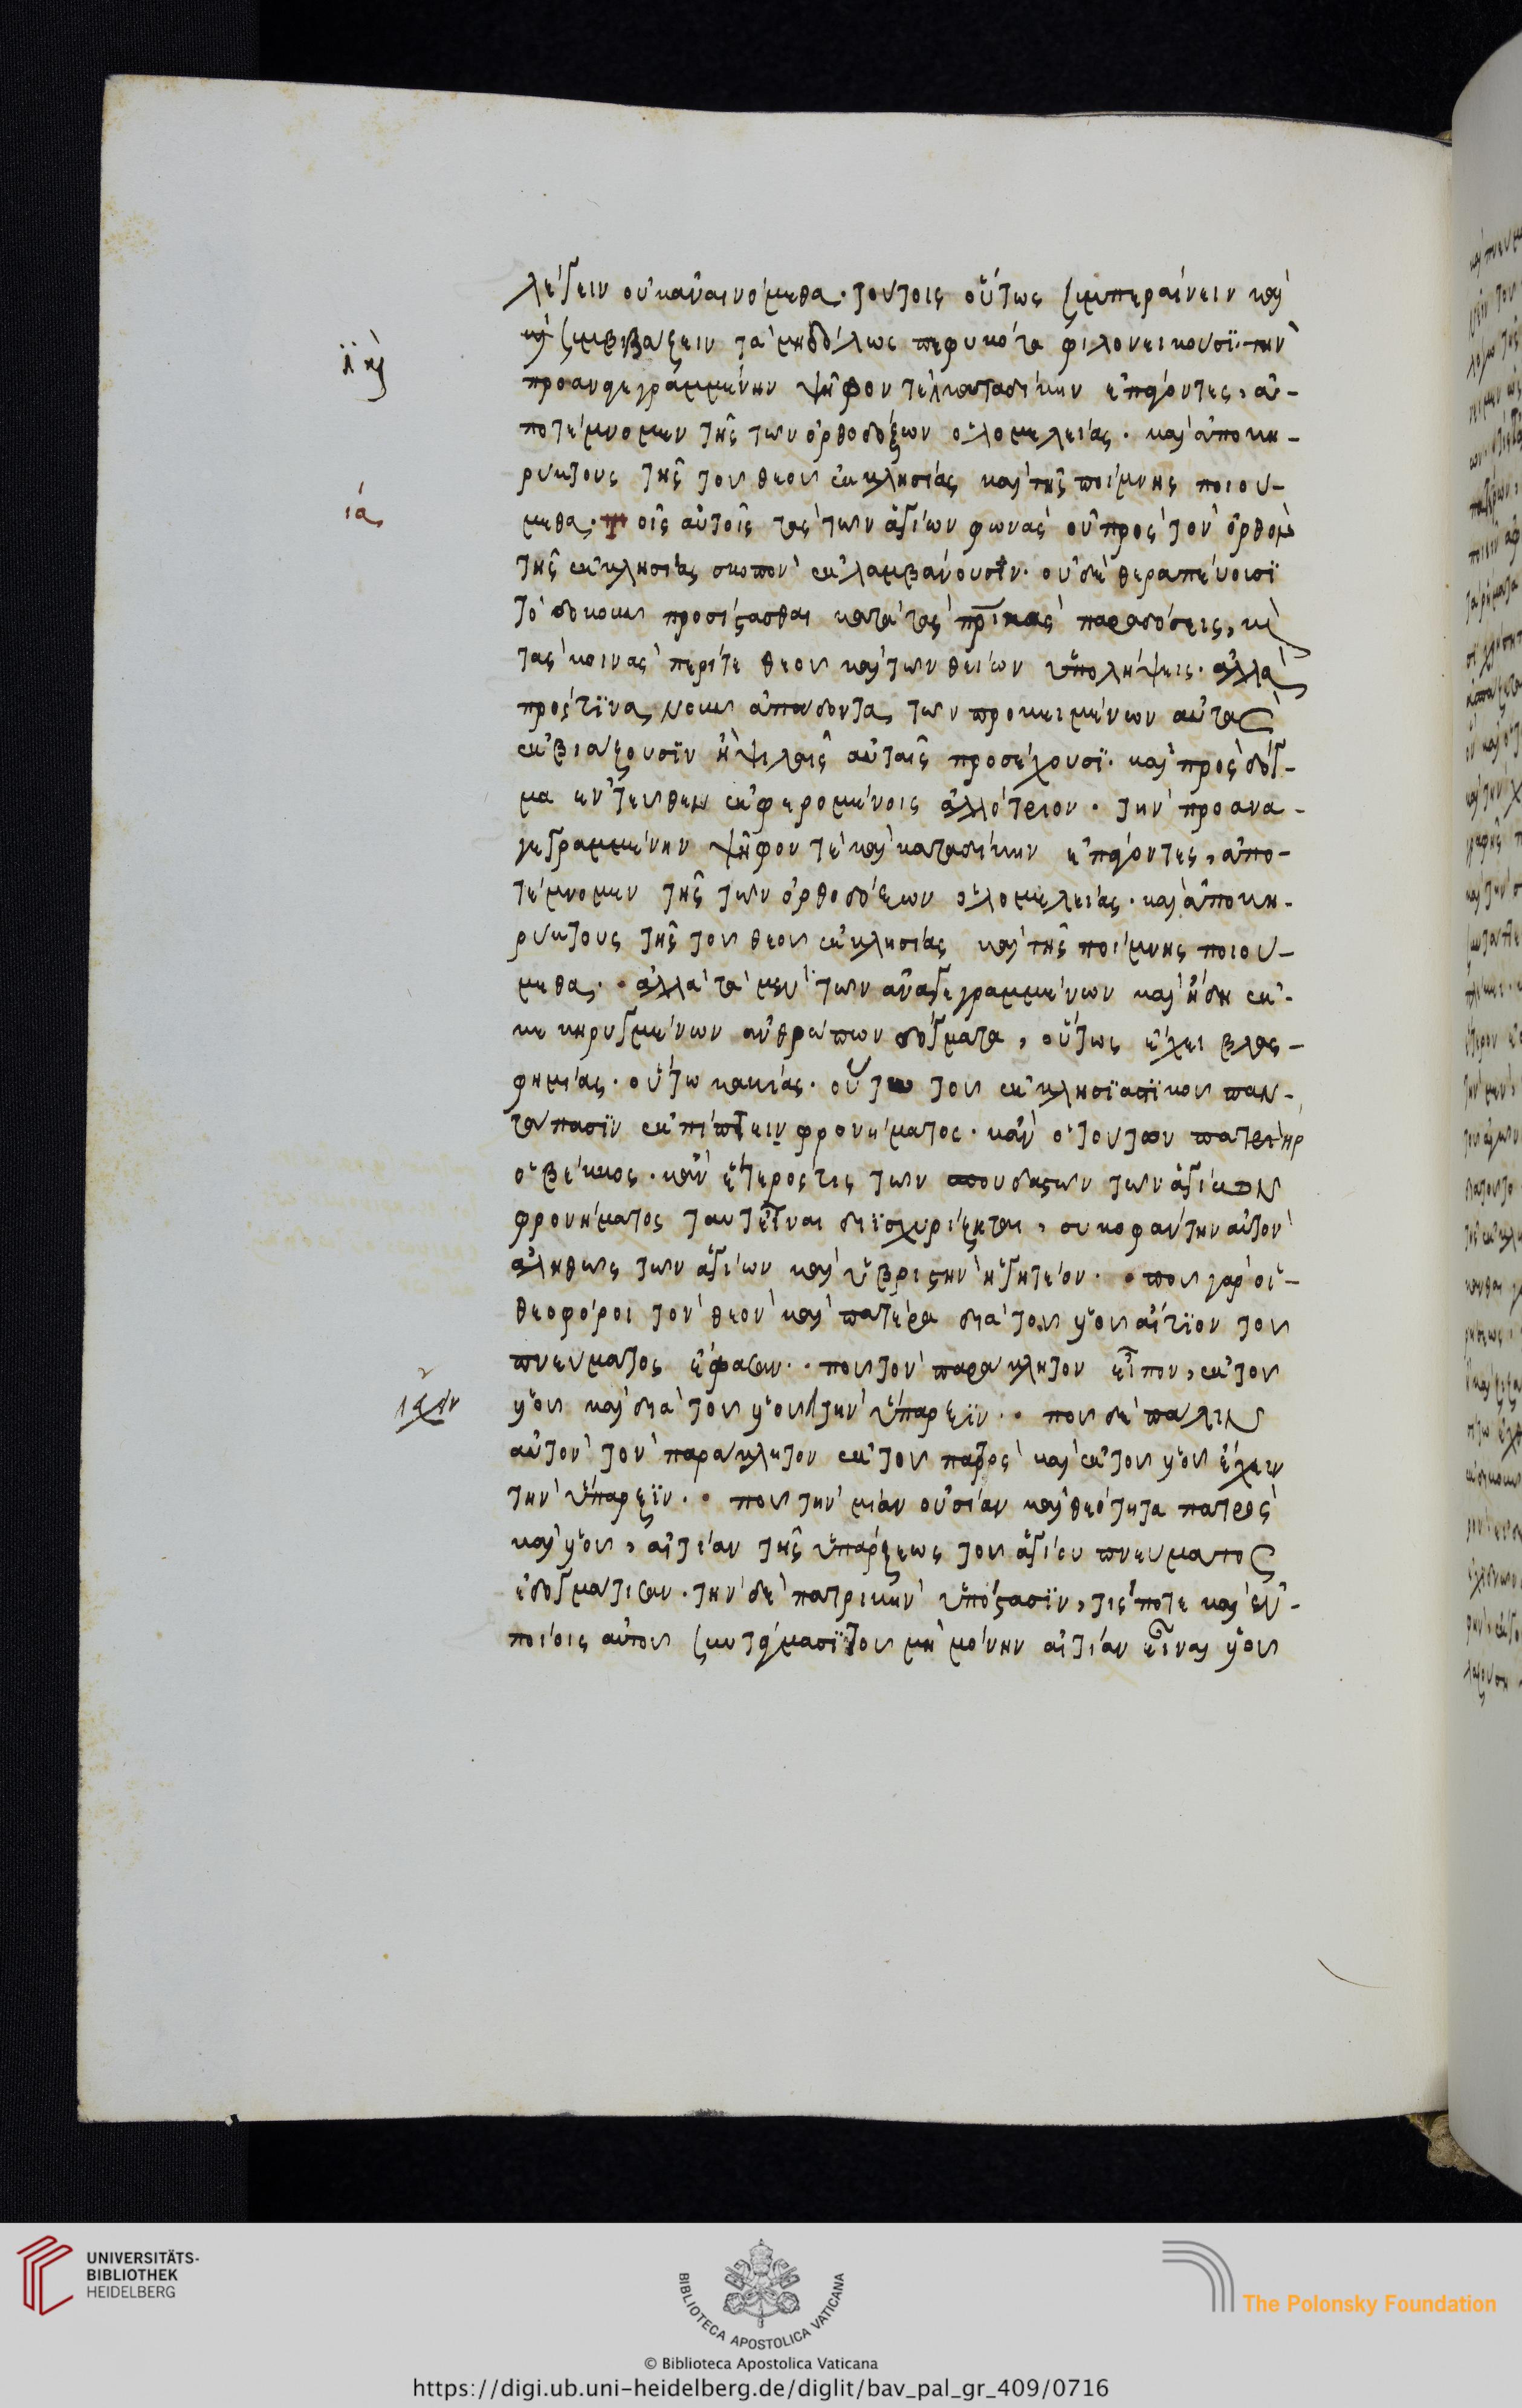 λέγειν οὐκ ἀναινόμεθα. τούτοις οὕτως συμπεραίνειν καὶ
κὴ συμβιβάζειν τὰ μηδόλως πεφυκότα φιλονεικοῦσϊ. τὴν
ἢ κὴ
προαναγεγραμμένην ψῆφον τὲ καταδίκην ἐπάγοντες, ἀ-
ποτέμνομεν τῆς τῶν ὀρθοδόξων ὁλομελείας. καὶ ἀποκη-
ρύκτους τῆς τοῦ θεοῦ ἐκκλησίας καὶ τῆς ποίμνης ποιού-
ια
μεθα. Τοῖς αὐτοῖς τὰς τῶν ἁγίων φωνὰς οὐ πρὸς τὸν ὀρθὸν
τῆς ἐκκλησίας σκοπὸν ἐκλαμβάνουσϊν. οὐδὲ θεραπεύουσϊ
τὸ δοκοῦν προσίζασθαι κατὰ τὰς πρϊκὰς παραδόσεις, κὴ
τὰς κοινὰς περί τε θεοῦ καὶ τῶν θείων ὑπολήψεις. ἀλλὰ
πρός τϊνα νοῦν ἀπάδοντα τῶν προκειμένων αὐτὰς
ἐκβιάζουσϊν ἢ ψιλαῖς αὐταῖς προσέχουσϊ. καὶ πρὸς δόγ-
μα ἐντεῦθεν ἐκφερομένοις ἀλλότριον. τὴν προανα-
γεγραμμένην ψῆφον τὲ καὶ καταδίκην ἐπάγοντες, ἀπο-
τέμνομεν τῆς τῶν ὀρθοδόξων ὁλομελείας. καὶ ἀποκη-
ρύκτους τῆς τοῦ θεοῦ ἐκκλησίας καὶ τῆς ποίμνης ποιού-
μεθα. ἀλλὰ τὰ μὲν τῶν ἀναγεγραμμένων καὶ ἤδη ἐκ-
κεκηρυγμένων ἀνθρώπων δόγματα, οὕτως ἔχει βλας-
φημίας. οὕτω κακίας. οὕτω τοῦ ἐκκλησϊαστϊκοῦ παν-
τάπασϊν ἐκπίπτειν φρονήματος. κἂν ὁ τούτων πατὴρ
ὁ βέκκος. κἂν ἕτερός τις τῶν σπουδαστῶν τῶν ἁγίων
φρονήματος ταῦτ εἶναι διϊσχυρίζηται, συκοφάντην αὐτὸν
ἀληθῶς τῶν ἁγίων καὶ ὑβριστὴν ἡγητέον. ποῦ γὰρ οἱ
θεοφόροι τὸν θεὸν καὶ πατέρα διὰ τοῦ υἱοῦ αἴτϊον τοῦ
πνεύματος ἔφασαν. ποῦ τὸν παράκλητον εἶπον, ἐκ τοῦ
υἱοῦ καὶ διὰ τοῦ υἱοῦ τὴν ὕπαρξϊν. ποῦ δὲ πάλιν
αὐτὸν τὸν παράκλητον ἐκ τοῦ πατρὸς καὶ ἐκ τοῦ υἱοῦ ἔχειν
τὴν ὕπαρξϊν. ποῦ τὴν μίαν οὐσίαν καὶ θεότητα πατρὸς
καὶ υἱοῦ, αἰτίαν τῆς ὑπάρξεως τοῦ ἁγίου πνεύματος
ἐδογμάτισαν. τὴν δὲ πατρικὴν ὑπόστασϊν, τίς ποτε καὶ ἐν
ποίοις αὐτοῦ συντάγμασϊ τοῦ μὴ μόνην αἰτίαν εἶναι υἱοῦ
UNIVERSITÄTS-
BIBLIOTHEK
HEIDELBERG
BIBLIOTECA APOSTOLICA VATICANA
The Polonsky Foundation
© Biblioteca Apostolica Vaticana
https://digi.ub.uni-heidelberg.de/diglit/bav_pal_gr_409/0716